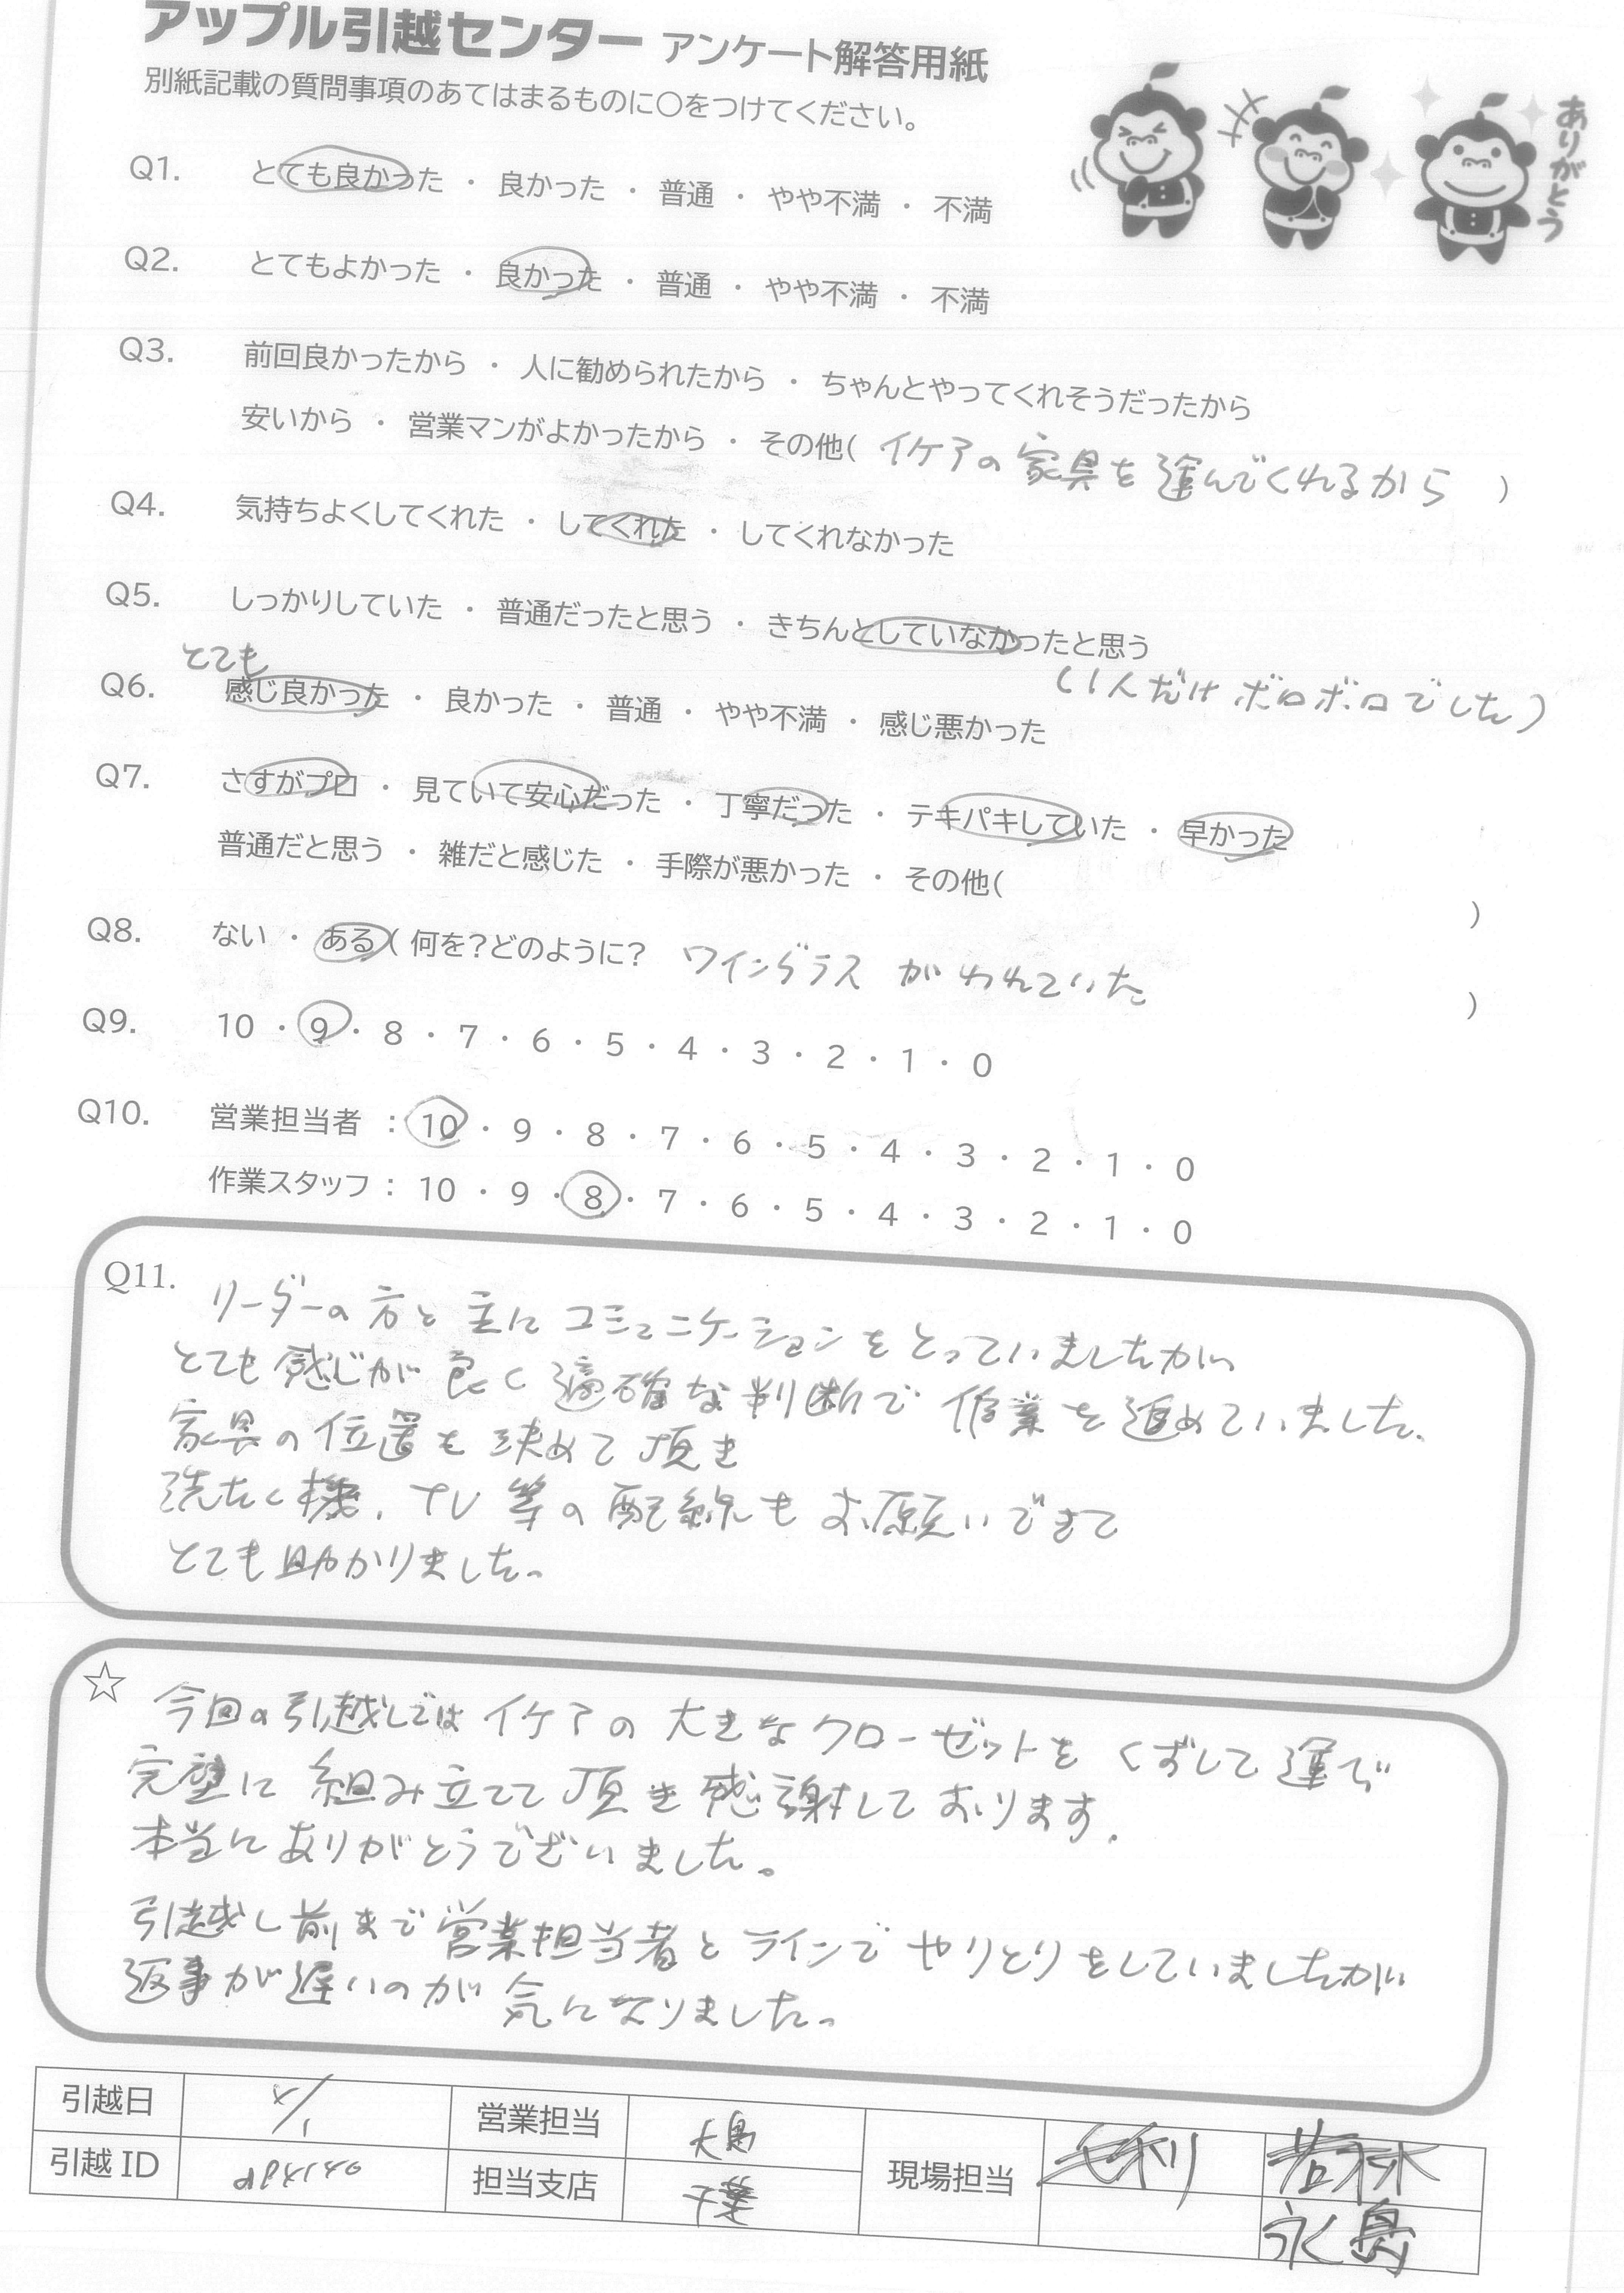 アップル引越センター アンケート解答用紙
別紙記載の質問事項のあてはまるものに〇をつけてください。
ありがとう
Q1. とても良かった ・ 良かった ・ 普通 ・ やや不満 ・ 不満
Q2. とてもよかった ・ 良かった ・ 普通 ・ やや不満 ・ 不満
Q3. 前回良かったから ・ 人に勧められたから ・ ちゃんとやってくれそうだったから
安いから ・ 営業マンがよかったから ・ その他( イケアの家具を運んでくれるから )
Q4. 気持ちよくしてくれた ・ してくれた ・ してくれなかった
Q5. しっかりしていた ・ 普通だったと思う ・ きちんとしていなかったと思う
(1人だけボロボロでした)
とても
Q6. 感じ良かった ・ 良かった ・ 普通 ・ やや不満 ・ 感じ悪かった
Q7. さすがプロ ・ 見ていて安心だった ・ 丁寧だった ・ テキパキしていた ・ 早かった
普通だと思う ・ 雑だと感じた ・ 手際が悪かった ・ その他( )
Q8. ない ・ ある( 何を?どのように? ワイングラスがわれていた )
Q9. 10 ・ 9 ・ 8 ・ 7 ・ 6 ・ 5 ・ 4 ・ 3 ・ 2 ・ 1 ・ 0
Q10. 営業担当者 : 10 ・ 9 ・ 8 ・ 7 ・ 6 ・ 5 ・ 4 ・ 3 ・ 2 ・ 1 ・ 0
作業スタッフ : 10 ・ 9 ・ 8 ・ 7 ・ 6 ・ 5 ・ 4 ・ 3 ・ 2 ・ 1 ・ 0
Q11. リーダーの方と主にコミュニケーションをとっていましたが、
とても感じが良く適確な判断で作業を進めていました、
家具の位置も決めて頂き
洗たく機、TV等の配線もお願いできて
とても助かりました。
☆ 今回の引越しではイケアの大きなクローゼットをくずして運び
完璧に組み立てて頂き感謝しております。
本当にありがとうございました。
引越し前まで営業担当者とラインでやりとりをしていましたが、
返事が遅いのが気になりました。
引越日 営業担当 大島 現場担当 毛利 若林
引越 ID 担当支店 千葉 永島